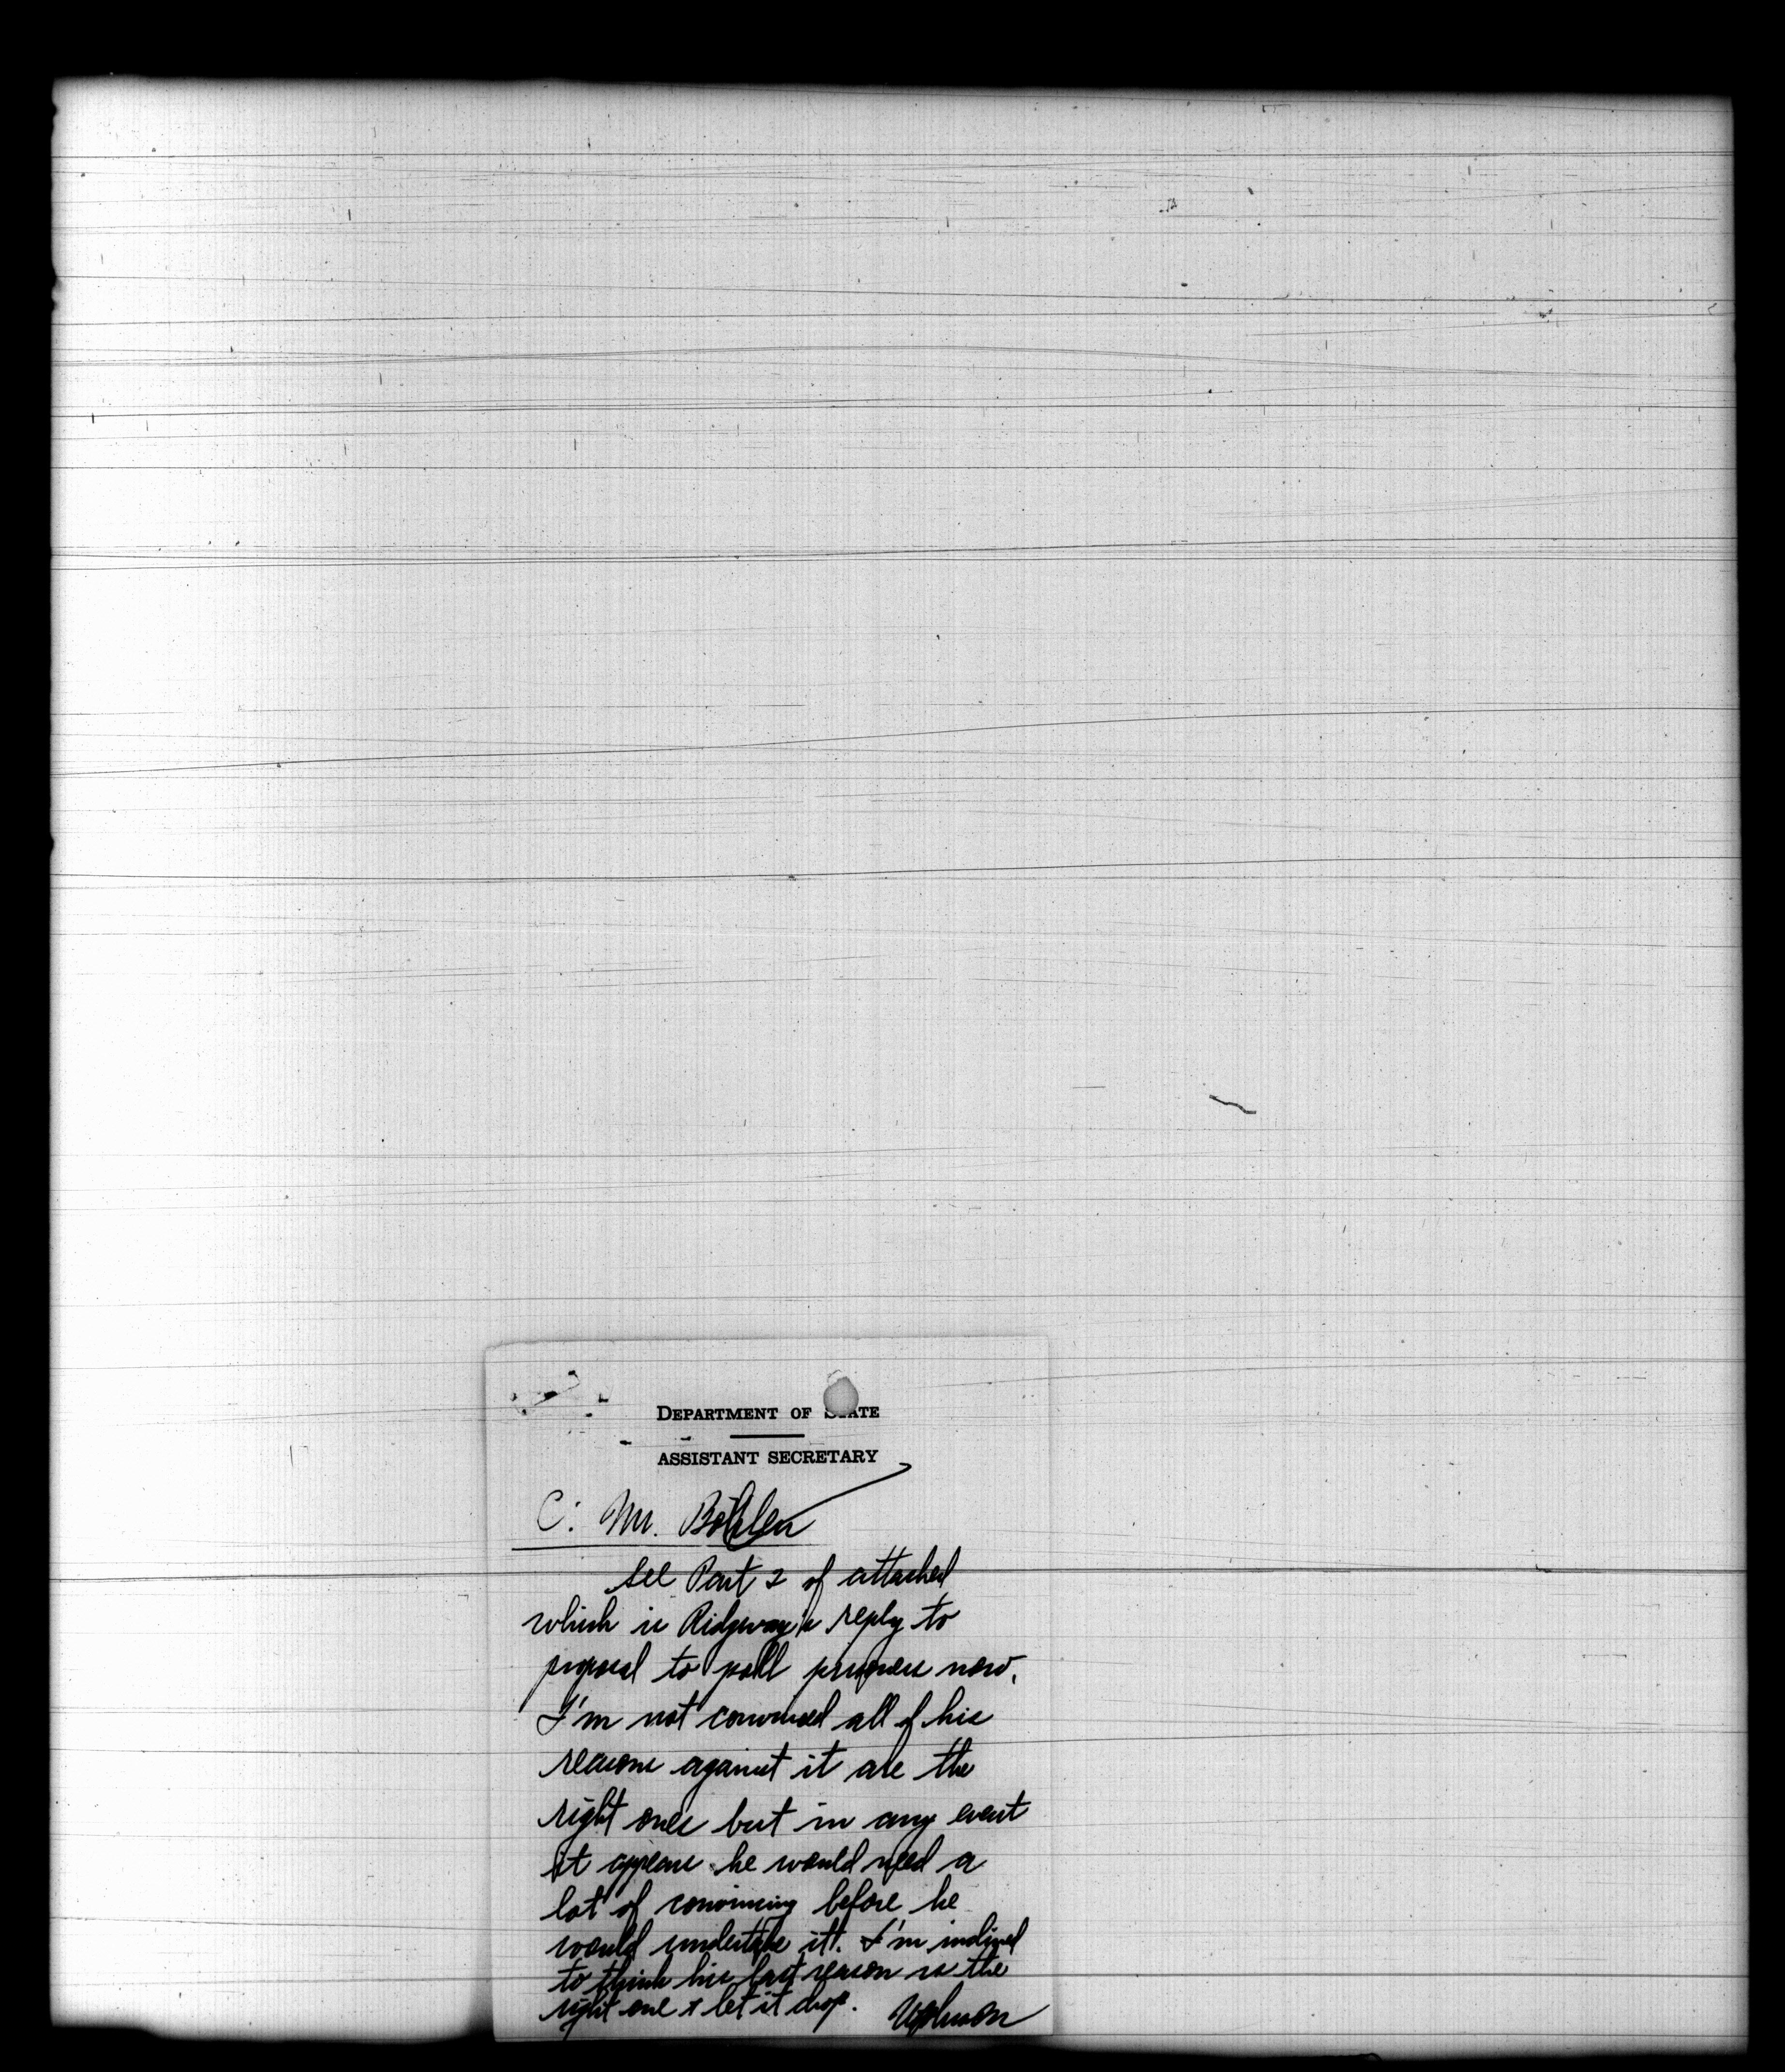 DEPARTMENT OF STATE
ASSISTANT SECRETARY
C: Mr. Bohlen
See Part 2 of attached
which is Ridgway's reply to
proposal to poll prisoners now.
I'm not convinced all of his
reasons against it are the
right ones but in any event
it appears he would need a
lot of convincing before he
would undertake it. I'm inclined
to think his last reason is the
right one & let it drop. UJohnson